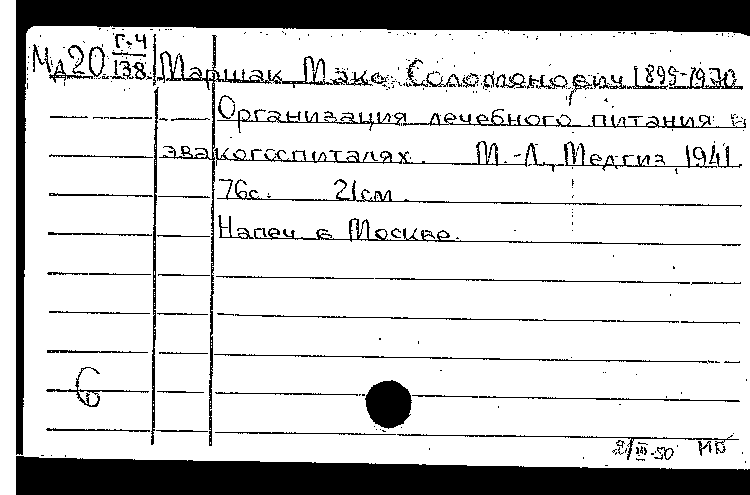 Мд20 Г-4/138 Маршак, Макс Соломонович 1899-1970
Организация лечебного питания в
эвакогоспиталях. М.-Л., Медгиз, 1941.
76с. 21см.
Напеч в Москве.
6
2/III-50 МБ